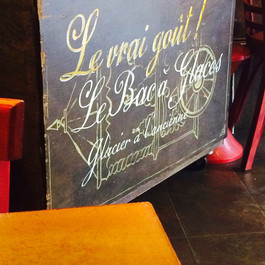 Le vrai goût !
Le Bac à Glaces
Glacier à l'ancienne